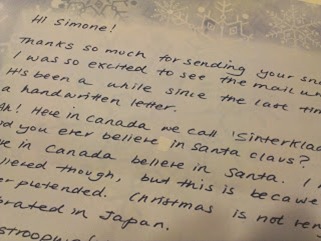 Hi Simone!
Thanks so much for sending your
I was so excited to see the mail
It's been a while since the last
a handwritten letter.
Here in Canada we call 'Sinterklaa
you ever believe in Santa Claus?
in Canada believe in Santa. I
though, but this is because
pretended. Christmas is not
in Japan.